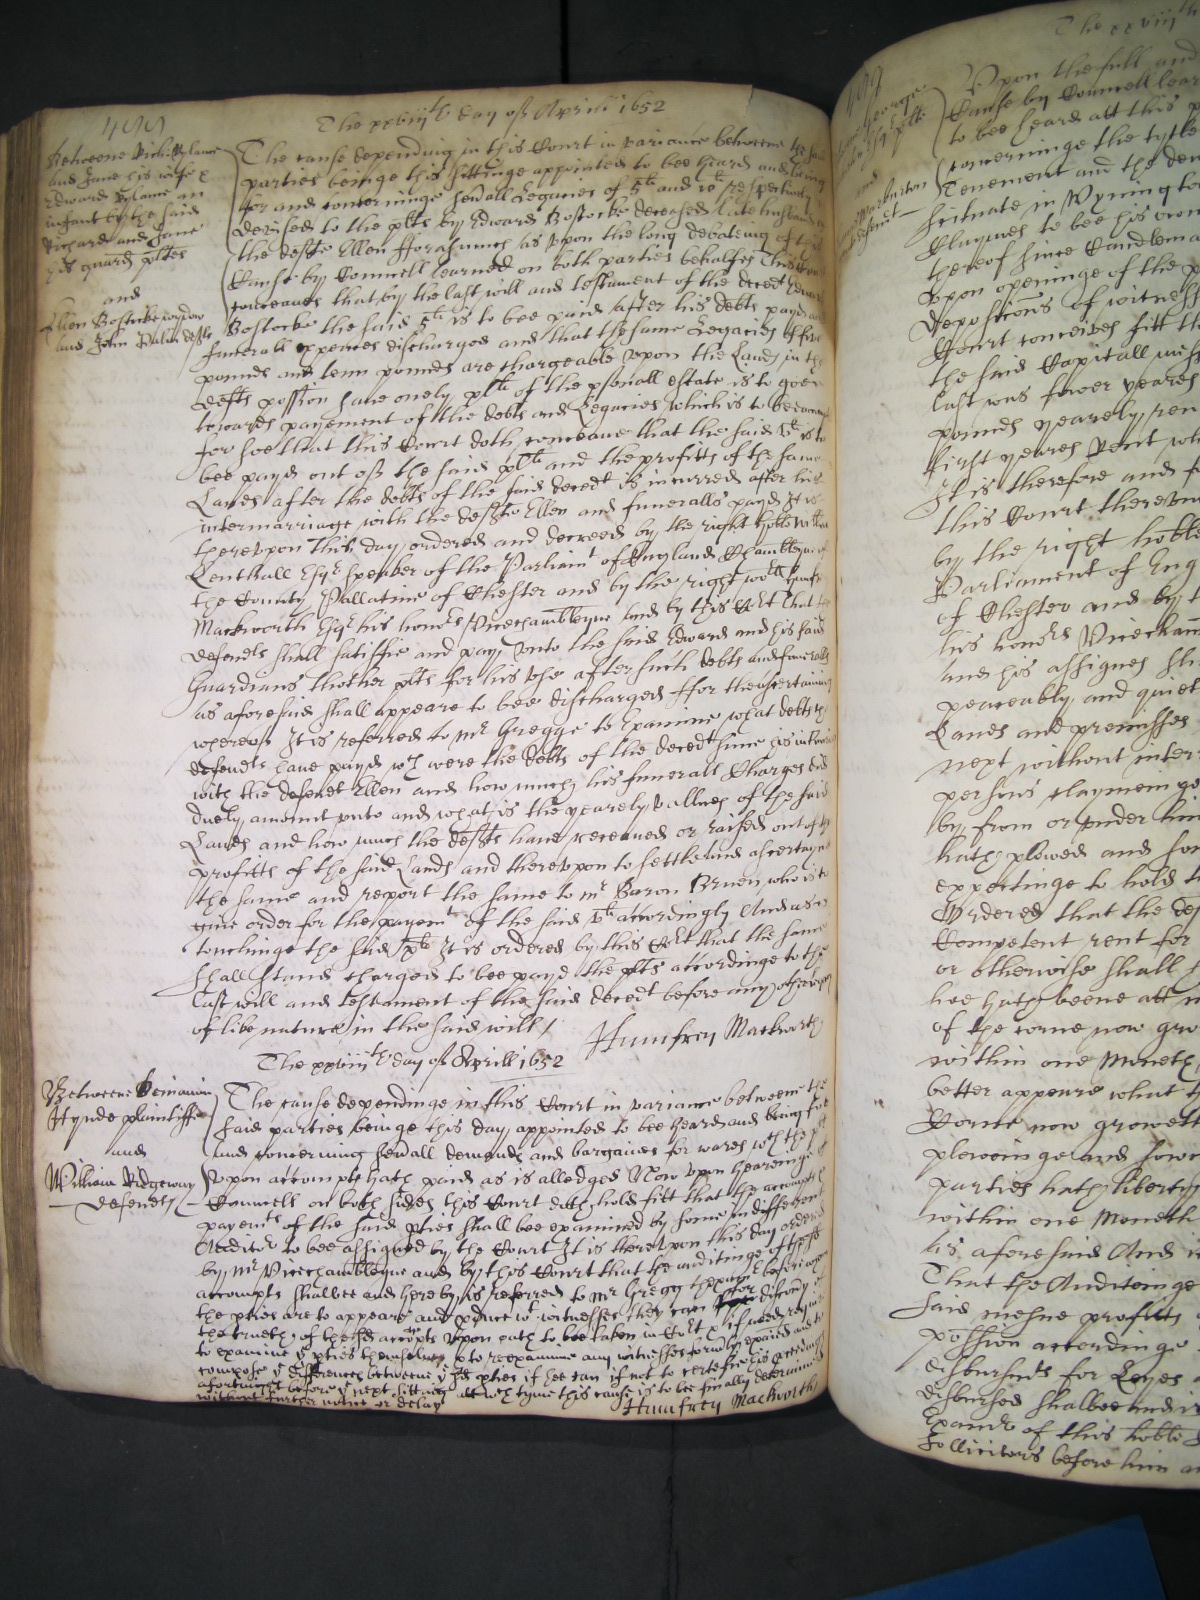 The xxviijth day of Aprill 1652
Betweene Rich: Rylance
and Jane his wife &
Edward Rylance an
infant by the said
Richard and Jane
his guard plts
and
Ellen Bostocke widdow
and John defts
The cause depending in this Court in variance betweene the said
parties beinge this sittinge appointed to bee heard and being
for and concerninge sevall Legacies of 5li and 10li respectively
devised to the plts by Edward Bostocke deceased late husband of
the defte Ellen Forasmuch as upon the long debateing of this
Cause by Councell learned on both parties behalfes This Court
conceaves that by the last will and testament of the decedt Edward
Bostocke the said 5li is to bee paid after his debts payd and
funerall expences discharged and that the same Legacies of five
pounds and tenn pounds are chargeable upon the Lands in the
defts possion save onely of the psonall estate is to goe
towards payement of the debts and Legacies which is to bee
for soe that this Court doth conceave that the said vli is to
bee payd out of the said and the profitts of the same
Lands after the debts of the said decedt is incurred after his
intermarriage with the defte Ellen and funeralls payd It is
thereupon this day ordered and decreed by the right hoble Willm
Lenthall Esqr speaker of the Parliamt of England Chamblayne of
the County Pallatine of Chester and by the right woll Humfr
Mackworth Esqr his honors Vicechamblayne and by this Cort That the
defendts shall satisfie and pay unto the said Edward and his said
Guardians thother plts for his use after such debts and funeralls
as aforesaid shall appeare to bee discharged ffor the ascertaining
whereof It is referred to Mr Gregge to Examine what debts the
defendts have payd wch were the debts of the decedt since his
with the defendt Ellen and how much his funerall Charges did
duely amount unto and what is the yearely vallues of the said
Lands and how much the defts have received or raised out of the
profitts of the said Lands and thereupon to settle and ascertayne
the same and report the same to Mr Baron Bruen who is to
give order for the payemt of the said vli accordingly And as
touchinge the said xli It is ordered by this Cort that the same
shall stand charged to bee payd the plts accordinge to the
last will and testament of the said decedt before any other
of like nature in the said will /
Humfrey Mackworth
The xxviijth day of Aprill 1652
Betweene Beniamin
Hynde plaintiffe
and
William Ridgeway
defendt
The cause dependinge in this Court in variance betweene the
said parties beinge this day appointed to bee heard and being for
and concerning sevall demands and bargaines for wares wch the plt
upon accompte hath paid as is alledged Now upon hearinge of
Councell on both sides this Court doth hold fitt that the accompts
payemts of the said pties shall bee examined by some indifferent
Auditor to bee assigned by the Court It is thereupon this day ordered
by Mr Vicechamblayne and by this Court that the auditinge of these
accompts shalbee and hereby is referred to Mr Gregg before whom
the pties are to appeare and pduce wt witnesses they can for discovy of
the trueth of these accompts upon oath to bee taken in Cort & if need require
to examine ye pties themselves & to reexamine any witnesses formly examd and to
compose ye differences betweene ye sd pties if hee can if not to certefie his
before ye next sitting att wch tyme this cause is to bee finally determined
without further notice or delay
Humfrey Mackworth
The xxviijth
Upon the full and
Cause by Councell lear
to bee heard att this
concerninge the tytle
Tenement and the dem
scituate in Wyningto
Claymes to bee his own
thereof since Candlema
Upon openinge of the p
Deposicons of witness
Court conceives fitt th
the said Capitall mess
last was fower yeares
pounds yearely ren
first yeares rent wh
It is therefore and f
this Court thereunt
by the right hoble
Parliament of Eng
of Chester and by t
his honors Vicecham
and his assignes sh
peaceably and quiet
Lands and premisses
next without inter
persons claymeinge
by from or under him
hath plowed and sow
expectinge to hold t
Ordered that the def
Competent rent for
or otherwise shall
hee hath beene att
of the corne now gro
within one Moneth
better appeare what t
Corne now groweth
ploweinge and sowe
parties hath liberty
within one Moneth
as aforesaid And i
That the Auditeinge
said mesne profitts
possion accordinge
disbursmts for Leyes
disbursed shalbee and is
Examr of this hoble
Sollicitors before him a